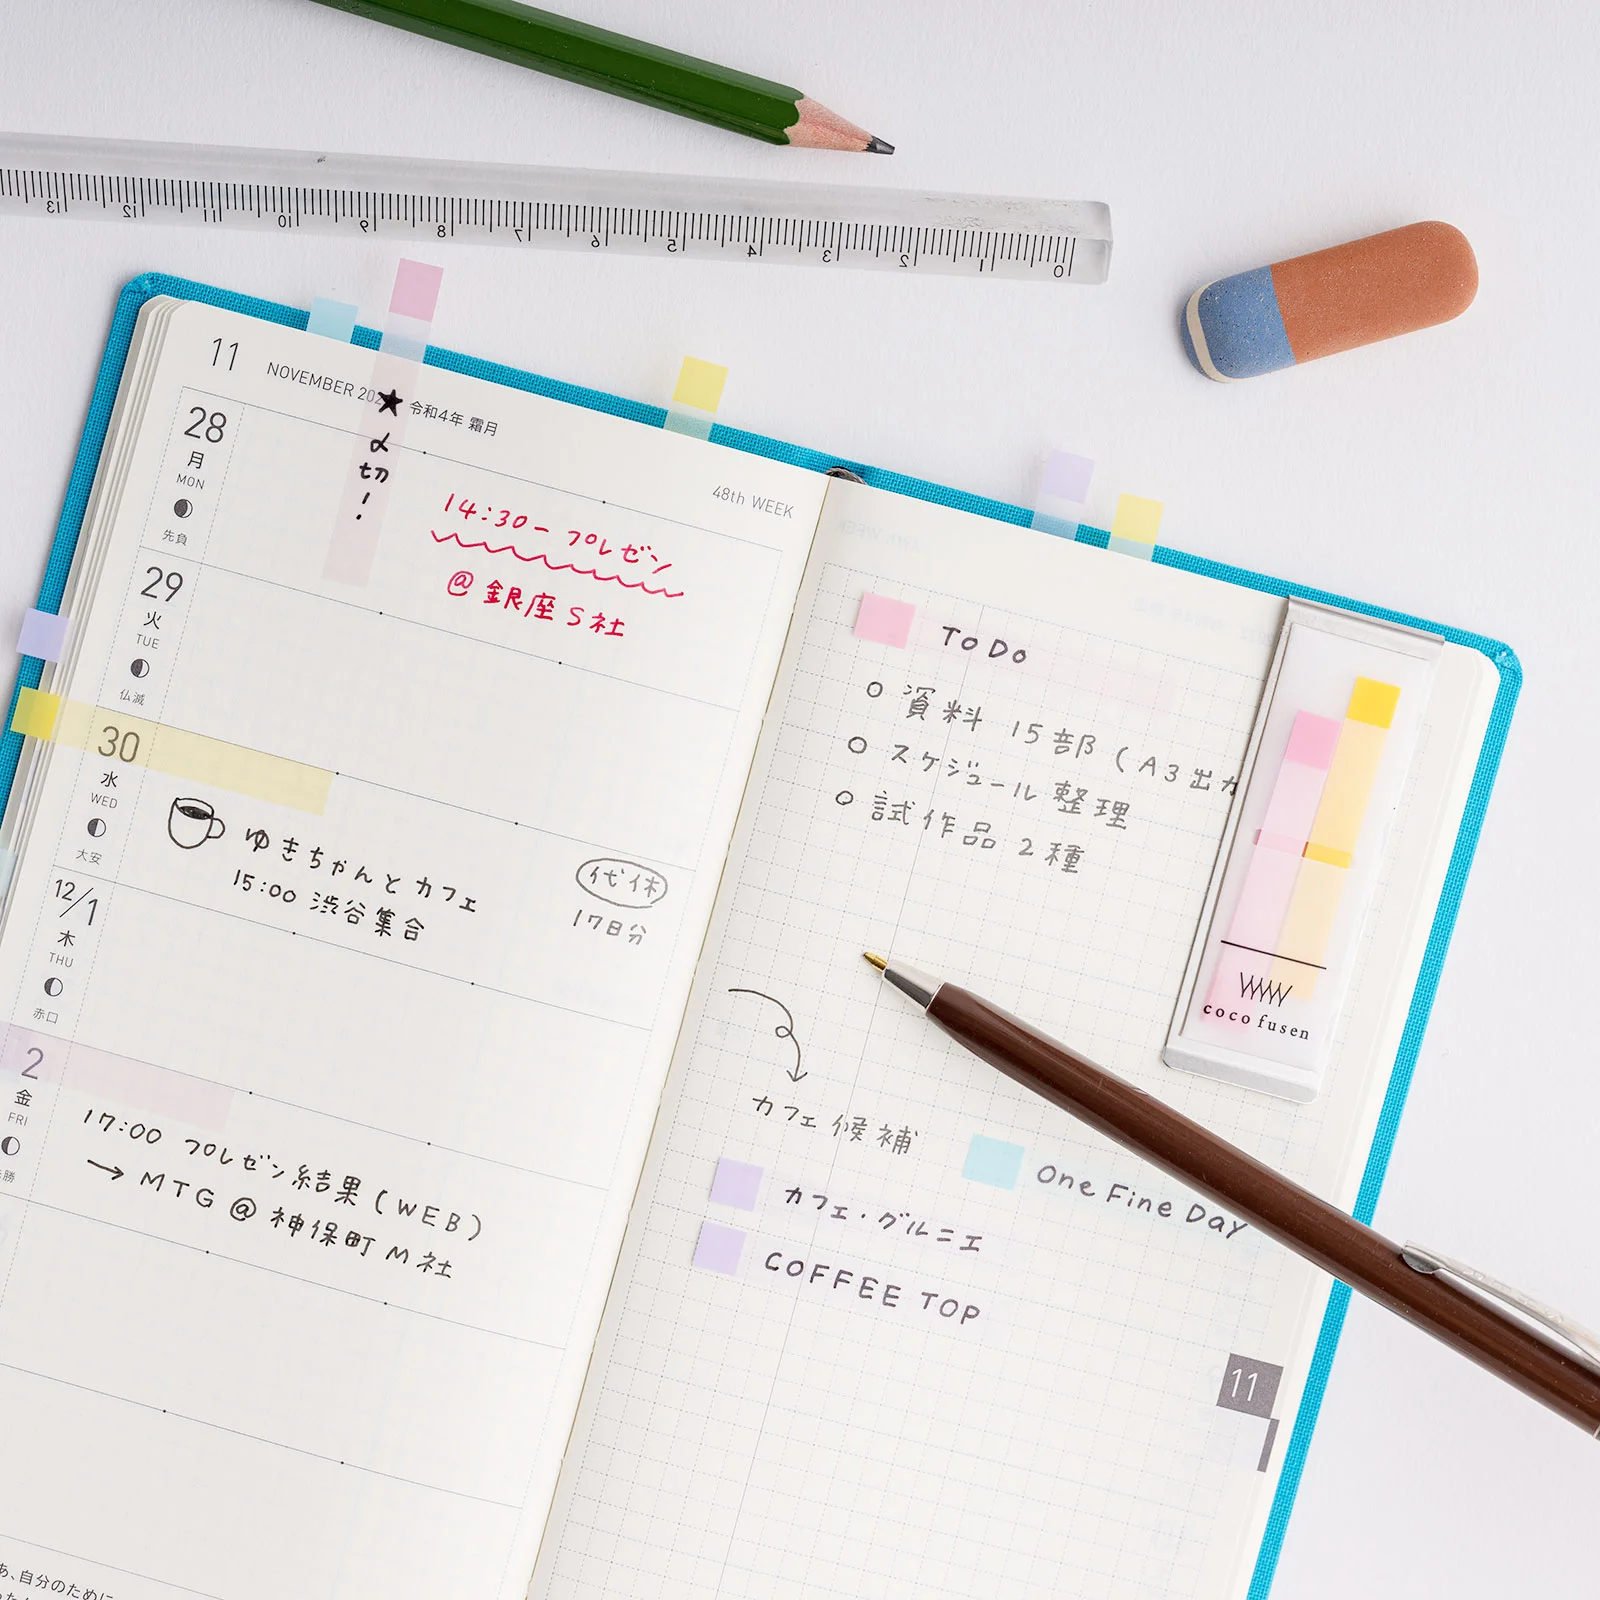 13 12 11 10 9 8 7 6 5 4 3 2 1 0
11 NOVEMBER 202 令和4年 霜月
48th WEEK
28
月
MON
先負
★〆切!
14:30ー プレゼン
@ 銀座 S社
29
火
TUE
仏滅
30
水
WED
大安
ゆきちゃんと カフェ
15:00 渋谷集合
代休
17日分
12/1
木
THU
赤口
2
金
FRI
勝
17:00 プレゼン結果 (WEB)
→ MTG @ 神保町 M社
あ、自分のために
ToDo
○ 資料 15部 (A3出力
○ スケジュール 整理
○ 試作品 2種
カフェ 候補
One Fine Day
カフェ・グルニエ
COFFEE TOP
coco fusen
11